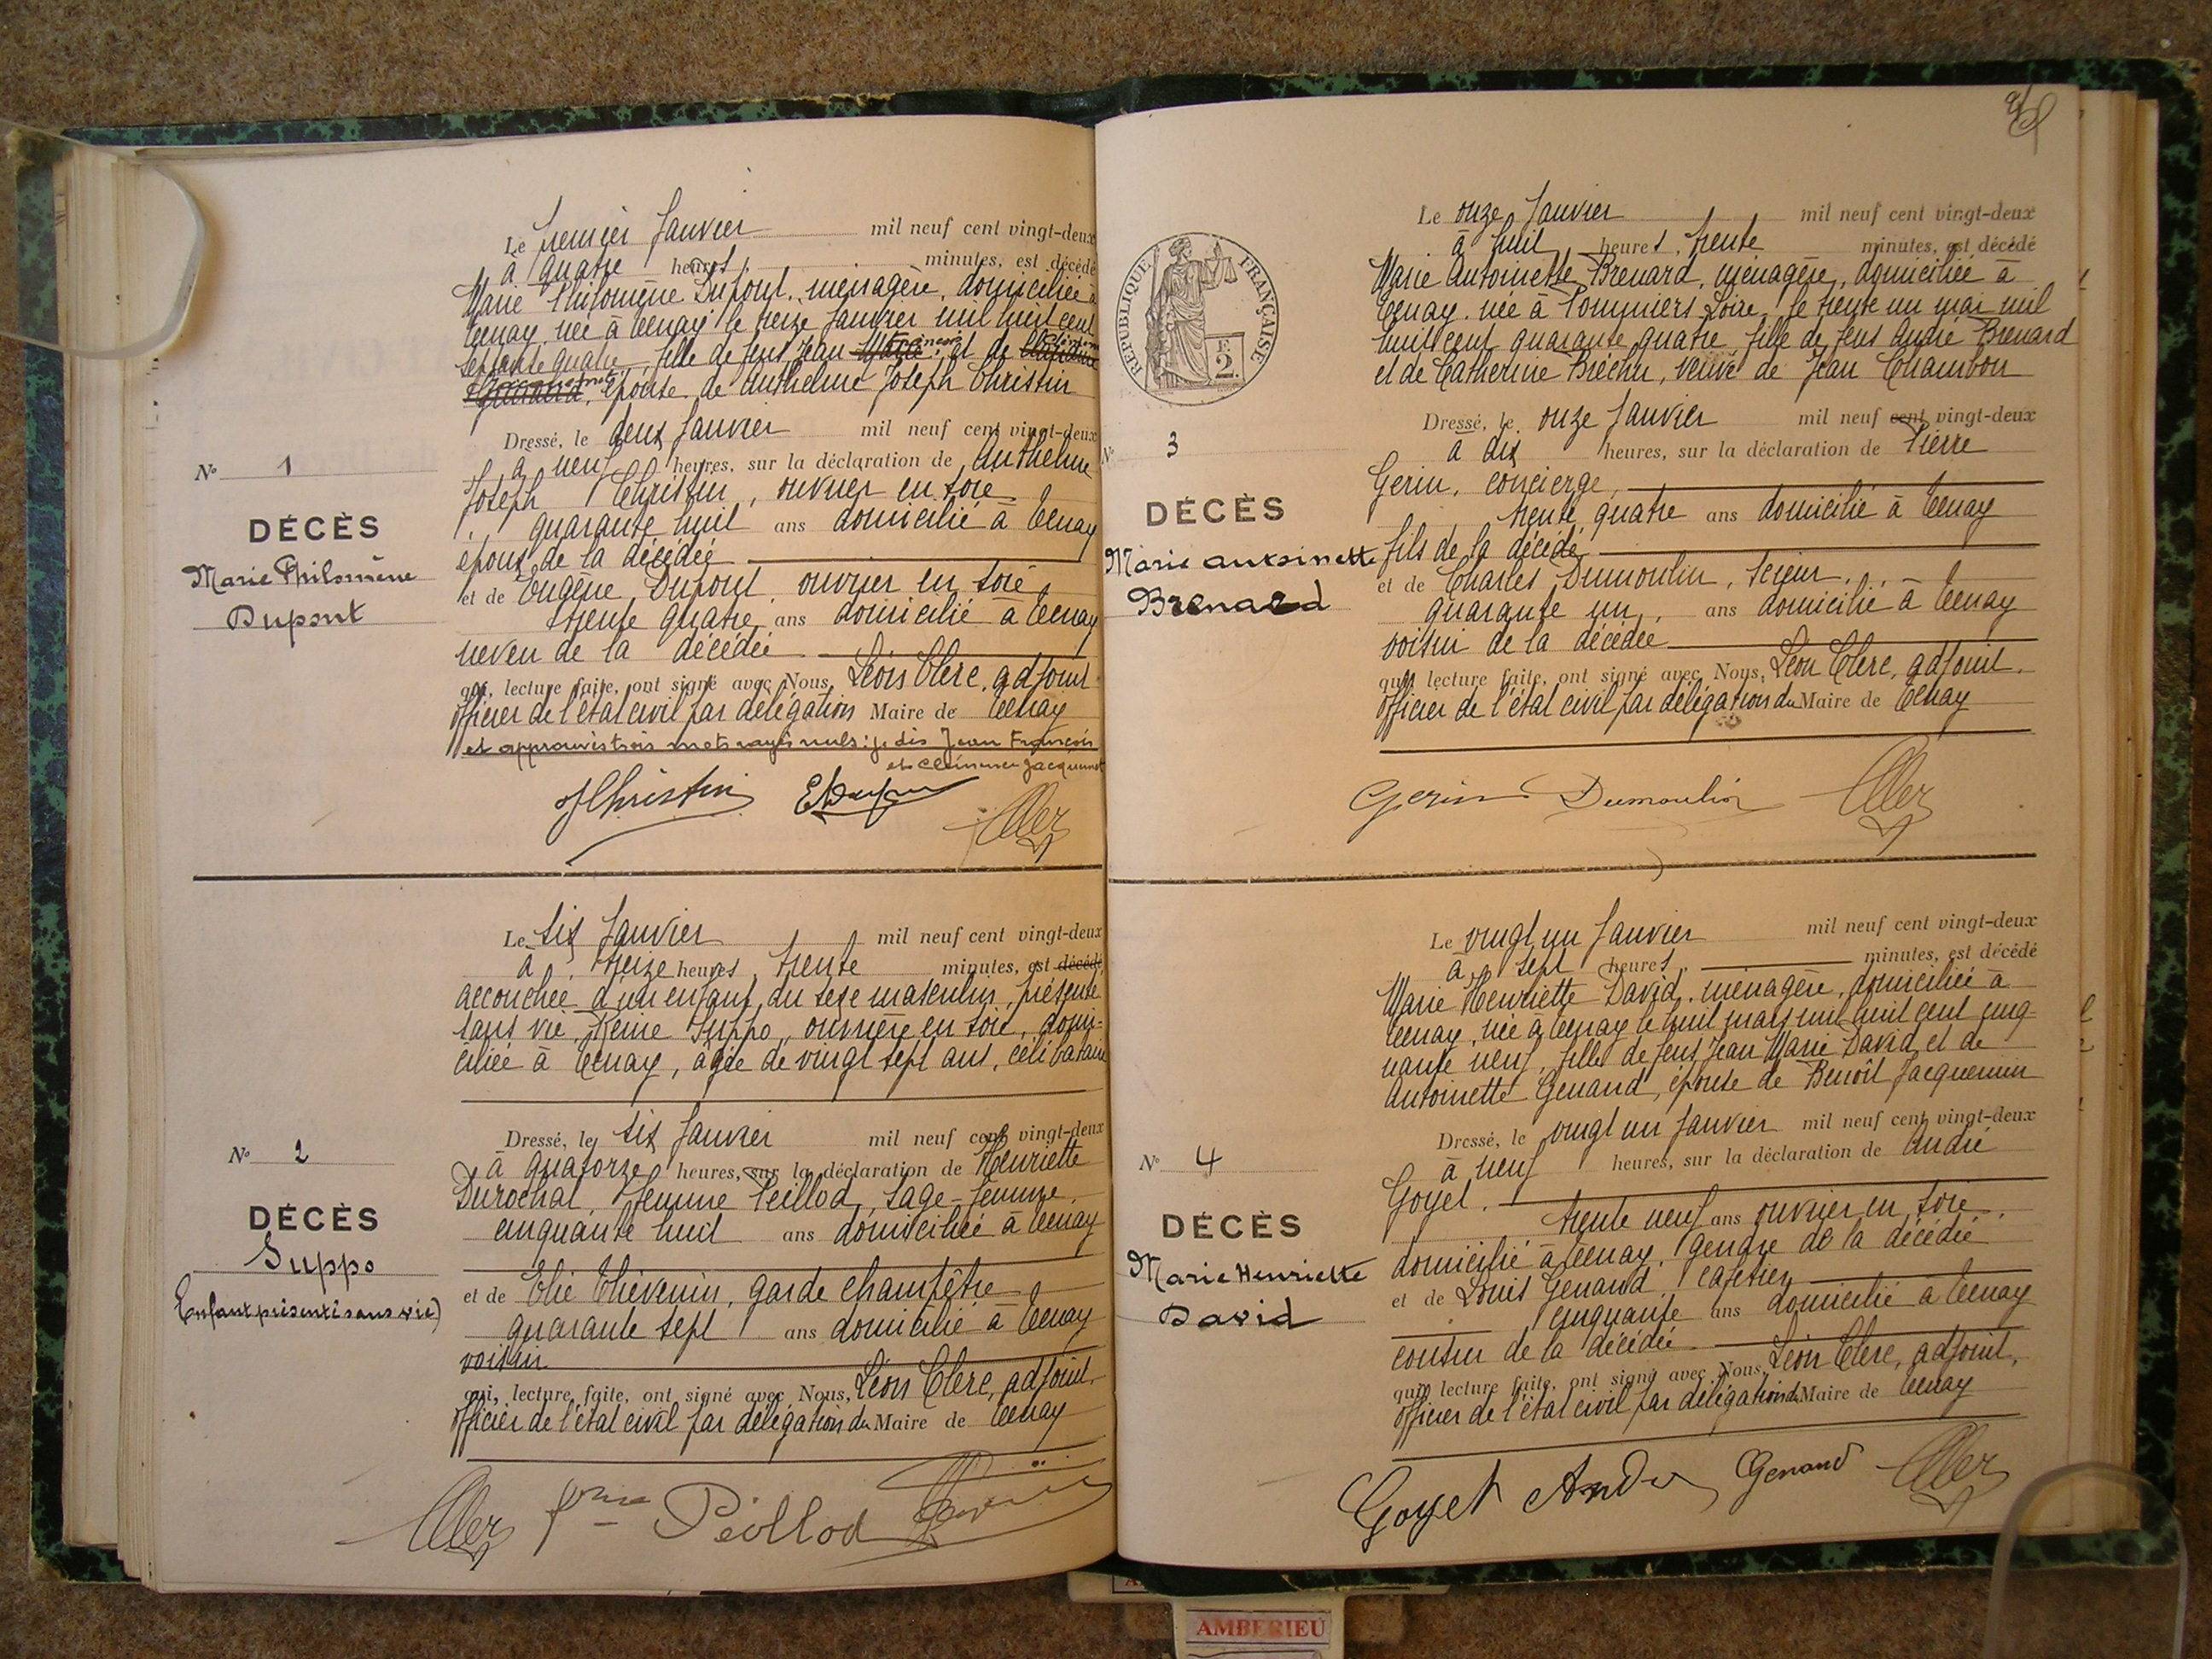 Le premier Janvier mil neuf cent vingt-deux
à quatre heures minutes, est décédé
Marie Philomène Dupont, ménagère, domiciliée à
Tenay, née à Tenay le treize Janvier mil huit cent
septante quatre, fille de feus Jean et de
épouse de Anthelme Joseph Christin
Dressé, le deux Janvier mil neuf cent vingt-deux
à neuf heures, sur la déclaration de Anthelme
Joseph Christin, ouvrier en soie
quarante huit ans domicilié à Tenay
époux de la décédée
et de Eugène Dupont, ouvrier en soie
trente quatre ans domicilié à Tenay
neveu de la décédée
qui, lecture faite, ont signé avec Nous, Léon Clerc, adjoint
officier de l'état civil par délégation Maire de Tenay
et approuvés trois mots rayés nuls : je dis Jean François
et Clémence Jacquemet
No 1
DÉCÈS
Marie Philomène
Dupont
JChristin
Le six Janvier mil neuf cent vingt-deux
à treize heures trente minutes, est décédé
accouchée d'un enfant du sexe masculin, présenté
sans vie, Reine Suppo, ouvrière en soie, domi-
ciliée à Tenay, âgée de vingt sept ans, célibataire
Dressé, le six Janvier mil neuf cent vingt-deux
à quatorze heures, sur la déclaration de Henriette
Durochat, femme Peillod, sage-femme,
cinquante huit ans domiciliée à Tenay
et de Elie Thévenin, garde champêtre
quarante sept ans domicilié à Tenay
voisin
qui, lecture faite, ont signé avec Nous, Léon Clerc, adjoint,
officier de l'état civil par délégation du Maire de Tenay
No 2
DÉCÈS
Suppo
Enfant présenté sans vie)
Peillod
RÉPUBLIQUE FRANÇAISE
2
Le onze Janvier mil neuf cent vingt-deux
à huit heures trente minutes, est décédé
Marie Antoinette Brenard, ménagère, domiciliée à
Tenay, née à Pommiers Loire, le trente un mai mil
huit cent quarante quatre fille de feus André Brenard
et de Catherine Bréchu, veuve de Jean Chambon
Dressé, le onze Janvier mil neuf cent vingt-deux
à dix heures, sur la déclaration de Pierre
Gerin, concierge,
trente quatre ans domicilié à Tenay
fils de la décédé
et de Charles Dumoulin, scieur,
quarante un ans domicilié à Tenay
voisin de la décédée
qui, lecture faite, ont signé avec Nous, Léon Clerc, adjoint,
officier de l'état civil par délégation du Maire de Tenay
No 3
DÉCÈS
Marie Antoinette
Brenard
Gerin Dumoulin
Le vingt un Janvier mil neuf cent vingt-deux
à sept heures minutes, est décédé
Marie Henriette David, ménagère, domiciliée à
Tenay, née à Tenay le huit mars mil huit cent cinq-
uante neuf, fille de feus Jean Marie David et de
Antoinette Genand, épouse de Benoît Jacquemin
Dressé, le vingt un Janvier mil neuf cent vingt-deux
à neuf heures, sur la déclaration de André
Goyet,
trente neuf ans ouvrier en soie,
domicilié à Tenay, gendre de la décédée
et de Louis Genand, cafetier
cinquante ans domicilié à Tenay
cousin de la décédée
qui, lecture faite, ont signé avec Nous, Léon Clerc, adjoint,
officier de l'état civil par délégation du Maire de Tenay
No 4
DÉCÈS
Marie Henriette
David
Goyet André Genand
AMBERIEU